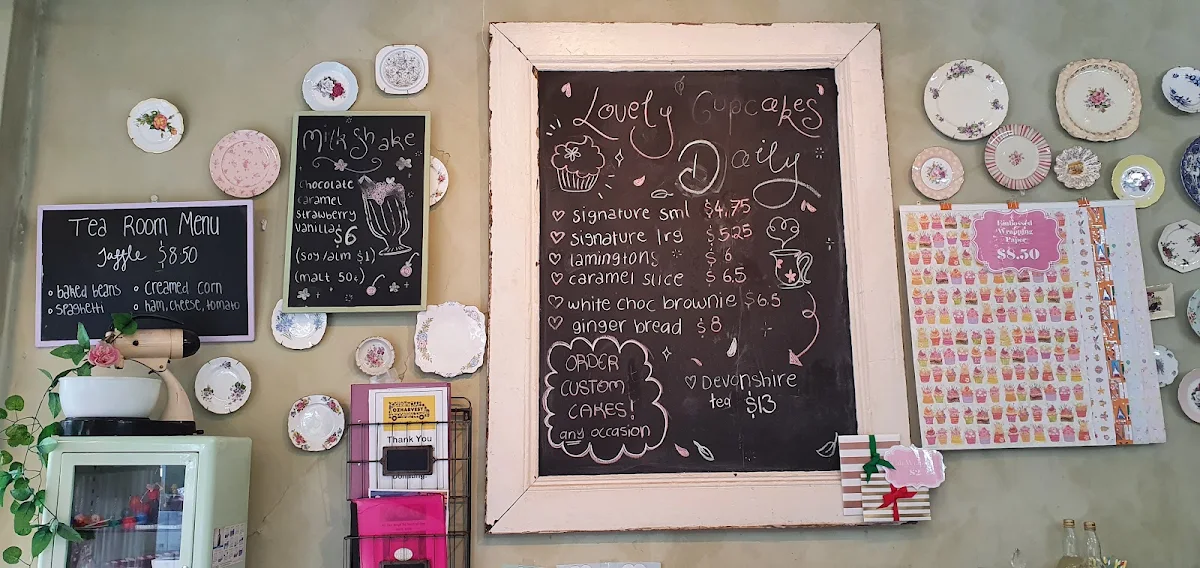 Tea Room Menu
Jaffle $8.50
• baked beans • creamed corn
• spaghetti • ham, cheese, tomato
Milkshake
chocolate
caramel
strawberry
vanilla $6
(soy/alm $1)
(malt 50¢)
Lovely Cupcakes
Daily
signature sml $4.75
signature lrg $5.25
lamingtons $6
caramel slice $6.5
white choc brownie $6.5
ginger bread $8
ORDER
CUSTOM
CAKES!
any occasion
Devonshire
tea $13
OZHARVEST
Thank You
Wrapping
Paper
$8.50